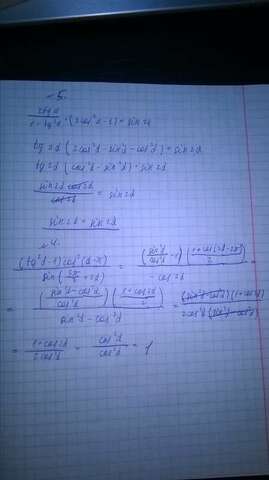 5.
2tg α / 1 - tg²α · (2cos²α - 1) = sin 2α
tg 2α (2cos²α - sin²α - cos²α) = sin 2α
tg 2α (cos²α - sin²α) = sin 2α
sin 2α cos 2α / cos 2α = sin 2α
sin 2α = sin 2α
4.
(tg²α - 1) cos²(α - π) / sin( + 2α) = (sin²α / cos²α - 1)(1 + cos(2α - 2π) / 2) / - cos 2α =
= (sin²α - cos²α / cos²α)(1 + cos 2α / 2) / sin²α - cos²α = (sin²α - cos²α)(1 + cos 2α) / 2cos²α (sin²α - cos²α)
= 1 + cos 2α / 2 cos²α = cos²α / cos²α = 1